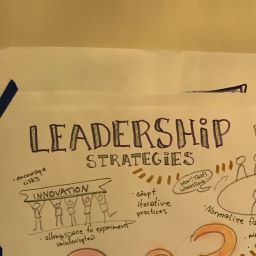 LEADERSHIP
STRATEGIES
• encourage
risks
INNOVATION
• allow space to experiment
uninterrupted
• adopt
iterative
practices
• Normalize